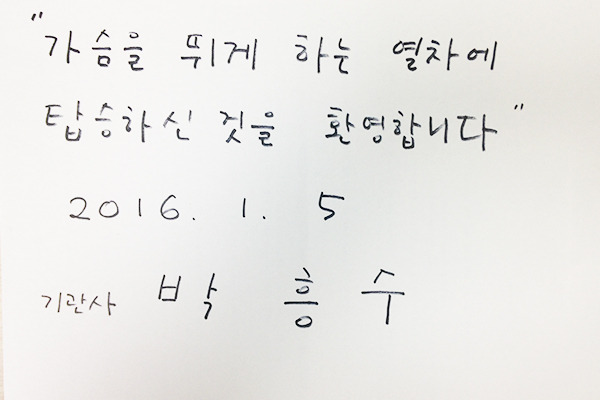 "가슴을 뛰게 하는 열차에
탑승하신 것을 환영합니다"
2016. 1. 5
기관사 박 흥 수